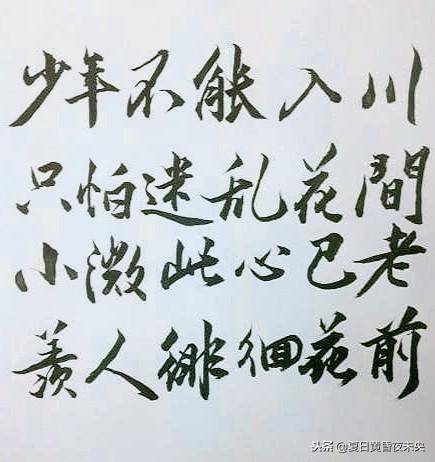 少年不能入川
只怕迷乱花間
小微此心已老
羨人徘徊花前
头条 @夏日黄昏夜未央